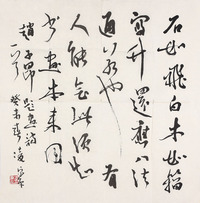 石如飛白木如籀
寫竹還應八法
通若也有
人能會此須知
書畫本来同
趙子昂題畫詩
一首癸未春